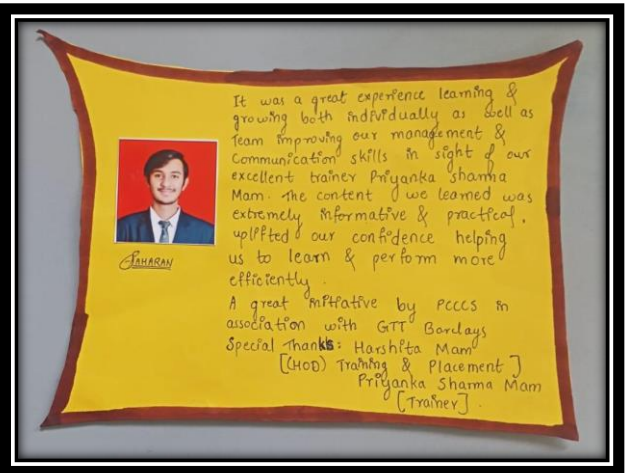 It was a great experience learning &
growing both individually as well as
Team improving our management &
Communication skills in sight of our
excellent trainer Priyanka sharma
Mam. The content we learned was
extremely informative & practical,
uplifted our confidence helping
us to learn & perform more
efficiently.
A great initiative by PCCCS in
association with GTT Barclays
Special Thanks: Harshita Mam
[(HOD) Training & Placement]
Priyanka Sharma Mam
[Trainer].
SAHARAN